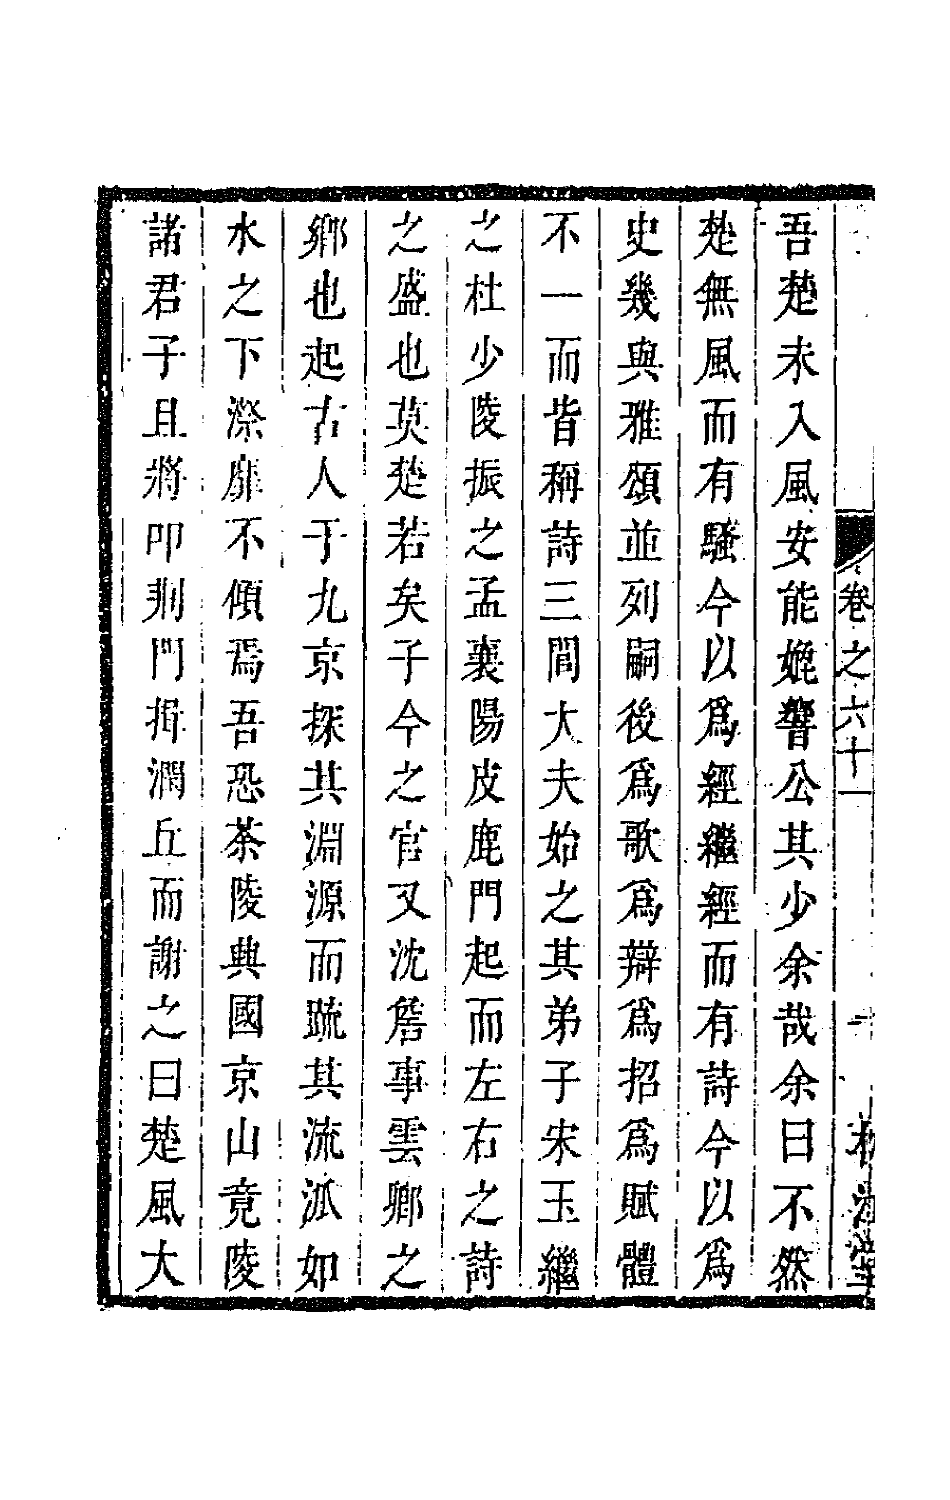 卷之六十一
吾楚未入風安能媲響公其少余哉余曰不然
楚無風而有騷今以爲經繼經而有詩今以爲
史幾與雅頌並列嗣後爲歌爲辯爲招爲賦體
不一而皆稱詩三閭大夫始之其弟子宋玉繼
之杜少陵振之孟襄陽皮鹿門起而左右之詩
之盛也莫楚若矣子今之官又沈詹事雲卿之
鄉也起古人于九京探其淵源而䟽其流泒如
水之下滐靡不傾焉吾恐茶陵典國京山竟陵
諸君子且將叩荆門揖澗丘而謝之曰楚風大